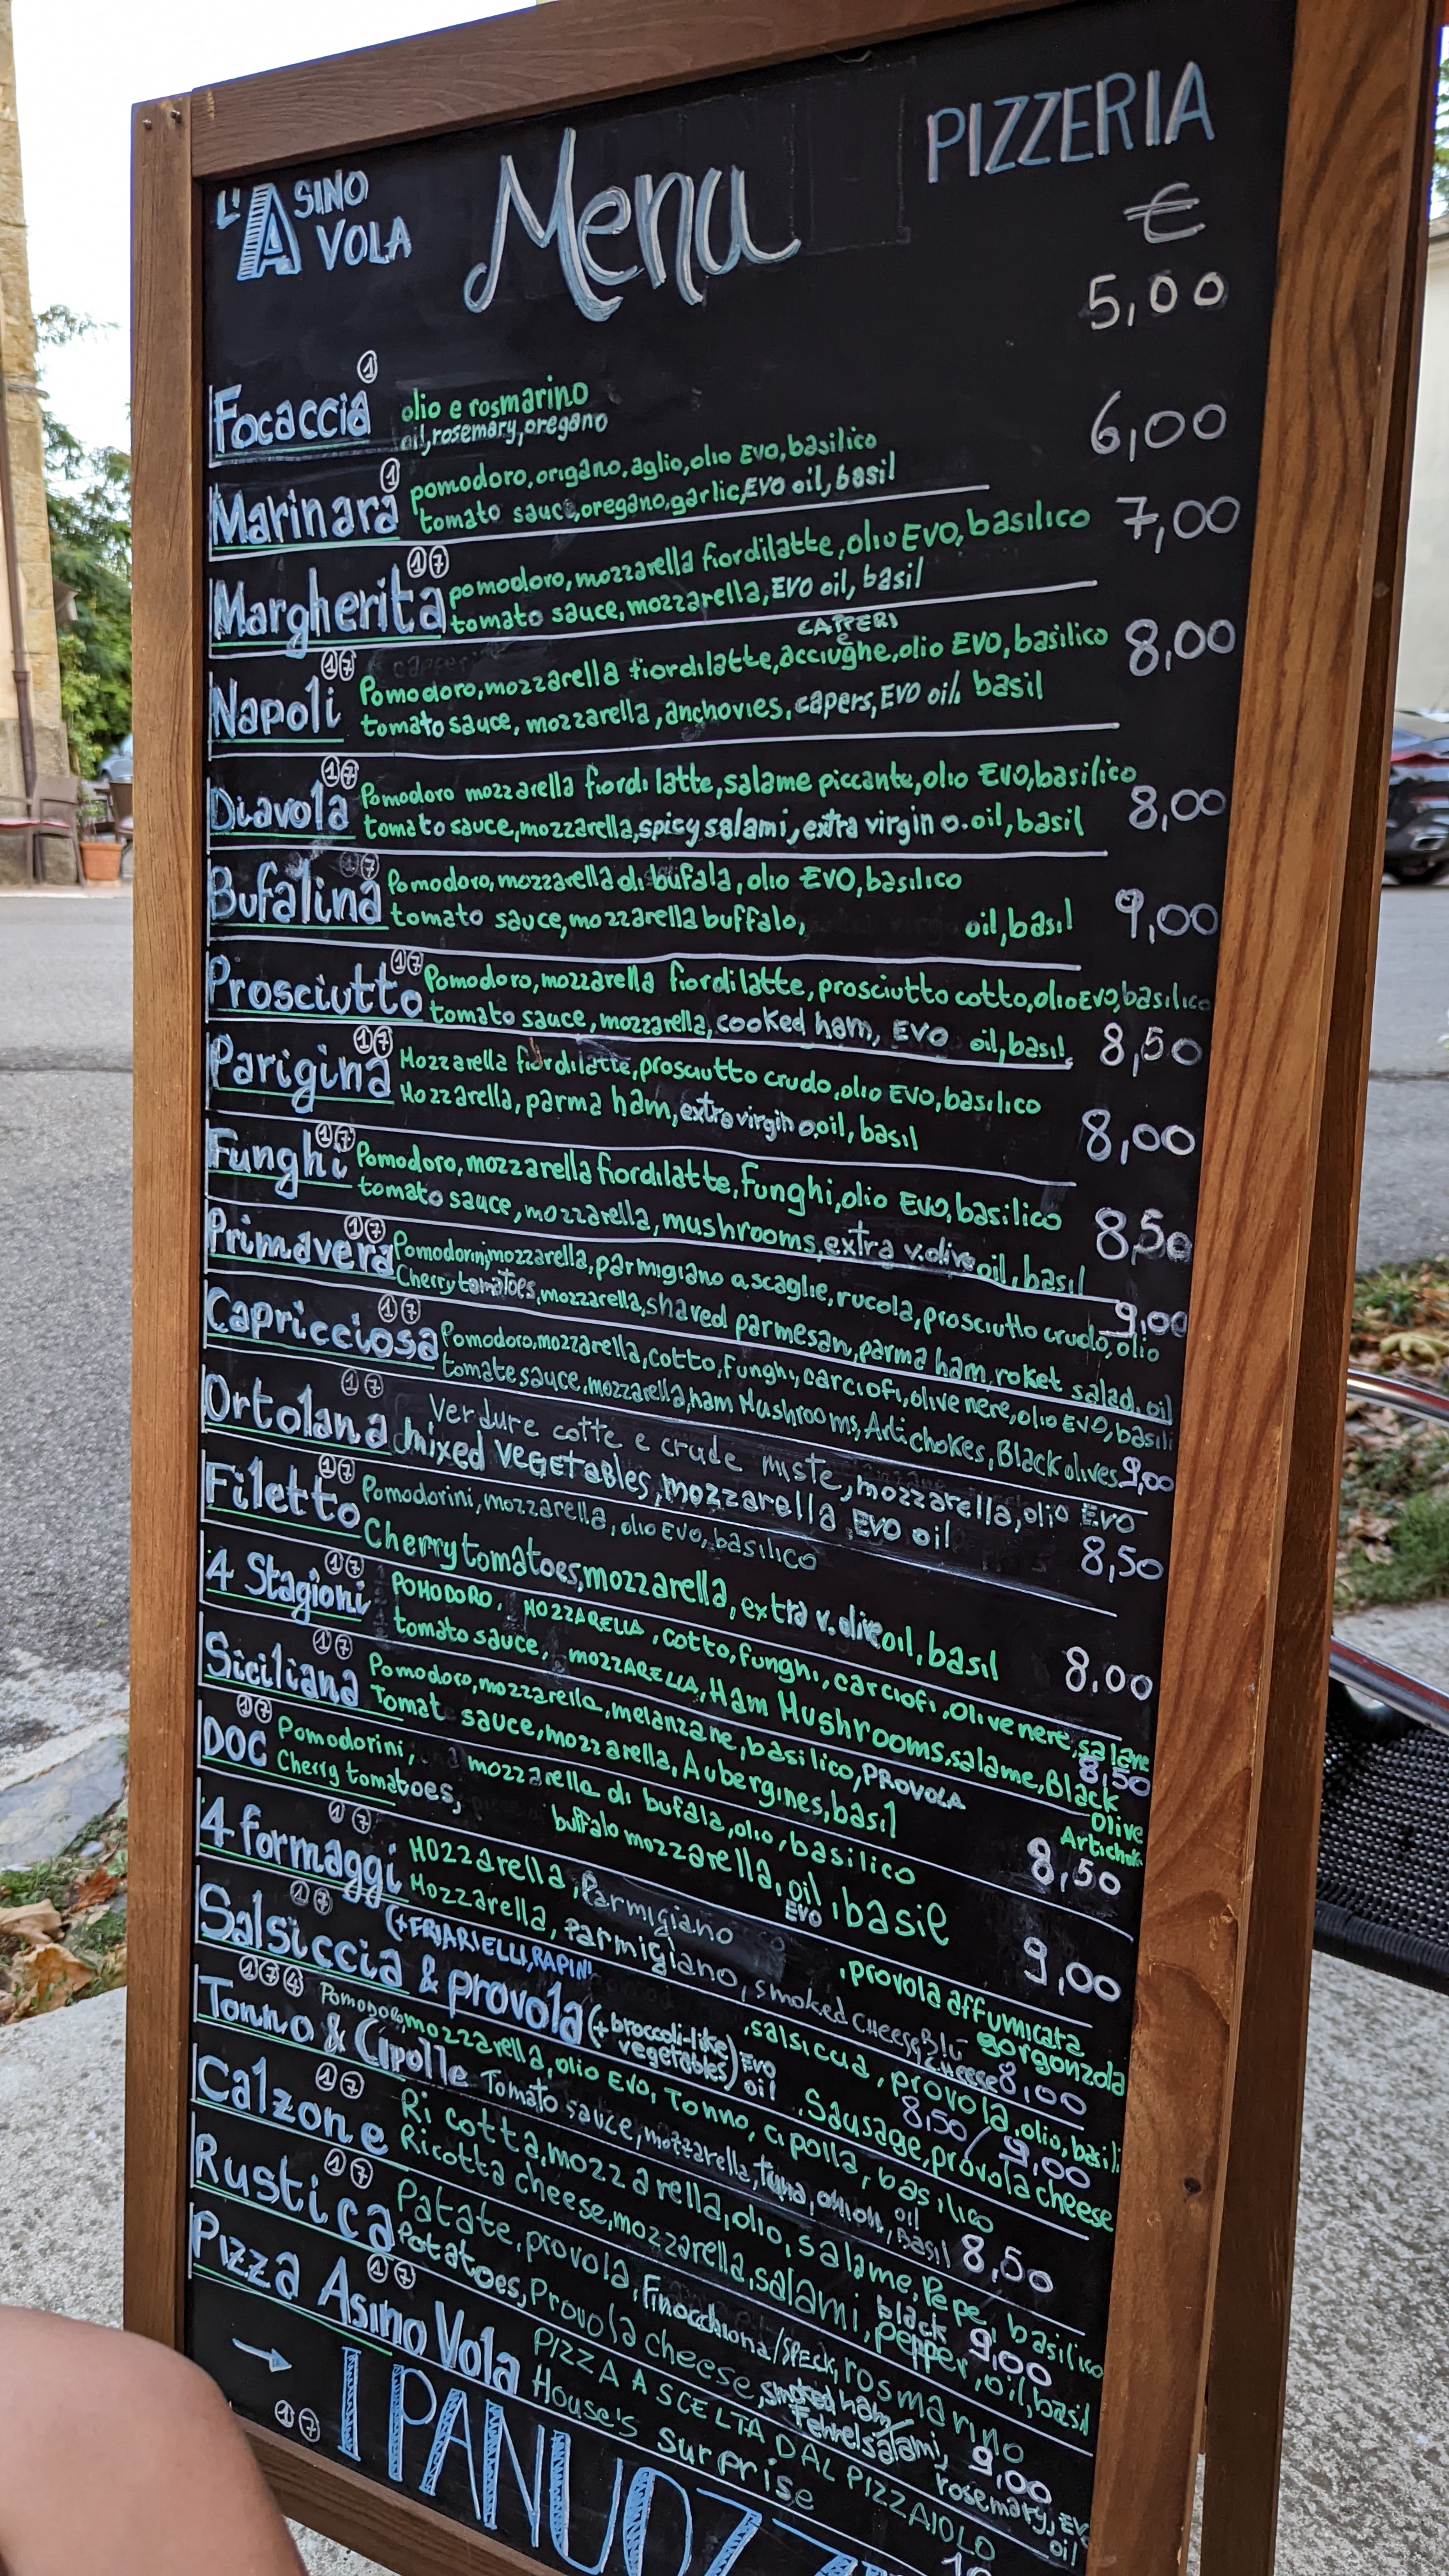 L'ASINO VOLA
Menu
PIZZERIA
€
5,00
Focaccia ①
olio e rosmarino
oil,rosemary,oregano
6,00
Marinara ①
pomodoro,origano,aglio,olio EVO,basilico
tomato sauce,oregano,garlic,EVO oil,basil
Margherita ①⑦
pomodoro,mozzarella fiordilatte,olio EVO,basilico 7,00
tomato sauce,mozzarella,EVO oil,basil
CAPPERI
Napoli ①⑦
Pomodoro,mozzarella fiordilatte,acciughe,olio EVO,basilico 8,00
tomato sauce, mozzarella,anchovies,capers,EVO oil, basil
Diavola ①⑦
Pomodoro mozzarella fiordi latte,salame piccante,olio EVO,basilico
tomato sauce,mozzarella,spicy salami,extra virgin o.oil,basil 8,00
Bufalina ①⑦
Pomodoro,mozzarella di bufala,olio EVO,basilico
tomato sauce,mozzarella buffalo, oil,basil 9,00
Prosciutto ①⑦
Pomodoro,mozzarella fiordilatte,prosciutto cotto,olio EVO,basilico
tomato sauce,mozzarella,cooked ham, EVO oil,basil, 8,50
Parigina ①⑦
Mozzarella fiordilatte,prosciutto crudo,olio EVO,basilico
Mozzarella,parma ham,extra virgin o.oil,basil 8,00
Funghi ①⑦
Pomodoro,mozzarella fiordilatte,funghi,olio EVO,basilico
tomato sauce,mozzarella,mushrooms,extra v.olive oil,basil 8,50
Primavera ①⑦
Pomodorini,mozzarella,parmigiano a scaglie,rucola,prosciutto crudo,olio
Cherry tomatoes,mozzarella,shaved parmesan,parma ham,roket salad,oil 9,00
Capricciosa ①⑦
Pomodoro,mozzarella,cotto,funghi,carciofi,olive nere,olio EVO,basili
tomate sauce,mozzarella,ham Mushrooms,Artichokes,Black olives 9,00
Ortolana ①⑦
Verdure cotte e crude miste,mozzarella,olio EVO
mixed VEGETABLES,mozzarella EVO oil 8,50
Filetto ①⑦
Pomodorini,mozzarella,olio EVO,basilico
Cherry tomatoes,mozzarella,extra v.olive oil,basil 8,00
4 Stagioni ①⑦
POMODORO, MOZZARELLA,cotto,funghi,carciofi,olive nere,salame
tomato sauce, mozzARELLA,Ham Mushrooms,salame,Black 8,50
Olive
Artichok
Siciliana ①⑦
Pomodoro,mozzarella,melanzane,basilico,PROVOLA
Tomat sauce,mozzarella,Aubergines,basil 8,50
DOC ①⑦
Pomodorini, mozzarella di bufala,olio,basilico
Cherry tomatoes, buffalo mozzarella,oil,basil 9,00
EVO
4 formaggi ①⑦
Mozzarella,Parmigiano ,provola affumicata
gorgonzola
Mozzarella,Parmigiano,smoked CHEESE,BLU
CHEESE 8,00
(+FRIARIELLI,RAPINI
Salsiccia & provola ①⑦
,salsiccia,provola,olio,basili
8,50/9,00
(+broccoli-like
vegetables) EVO
oil ,Sausage,provola cheese
Tonno & Cipolle ①⑦④
Pomodoro,mozzarella,olio EVO,Tonno,cipolla,basilico
Tomato sauce,mozzarella,tuna,onion,
oil
Basil 8,50
Calzone ①⑦
Ricotta,mozzarella,olio,salame,Pepe,basilico
black 9,00
Ricotta cheese,mozzarella,salami,pepper,oil,basil
Rustica ①⑦
Patate,provola,Finocchiona/SPECK,rosmarino
Potatoes,Provola cheese,smoked ham/
Fennel salami, 9,00
rosemary,EV
oil
Pizza Asino Vola ①⑦
PIZZA A SCELTA DAL PIZZAIOLO
House's surprise
→ I PANUOZ
①⑦